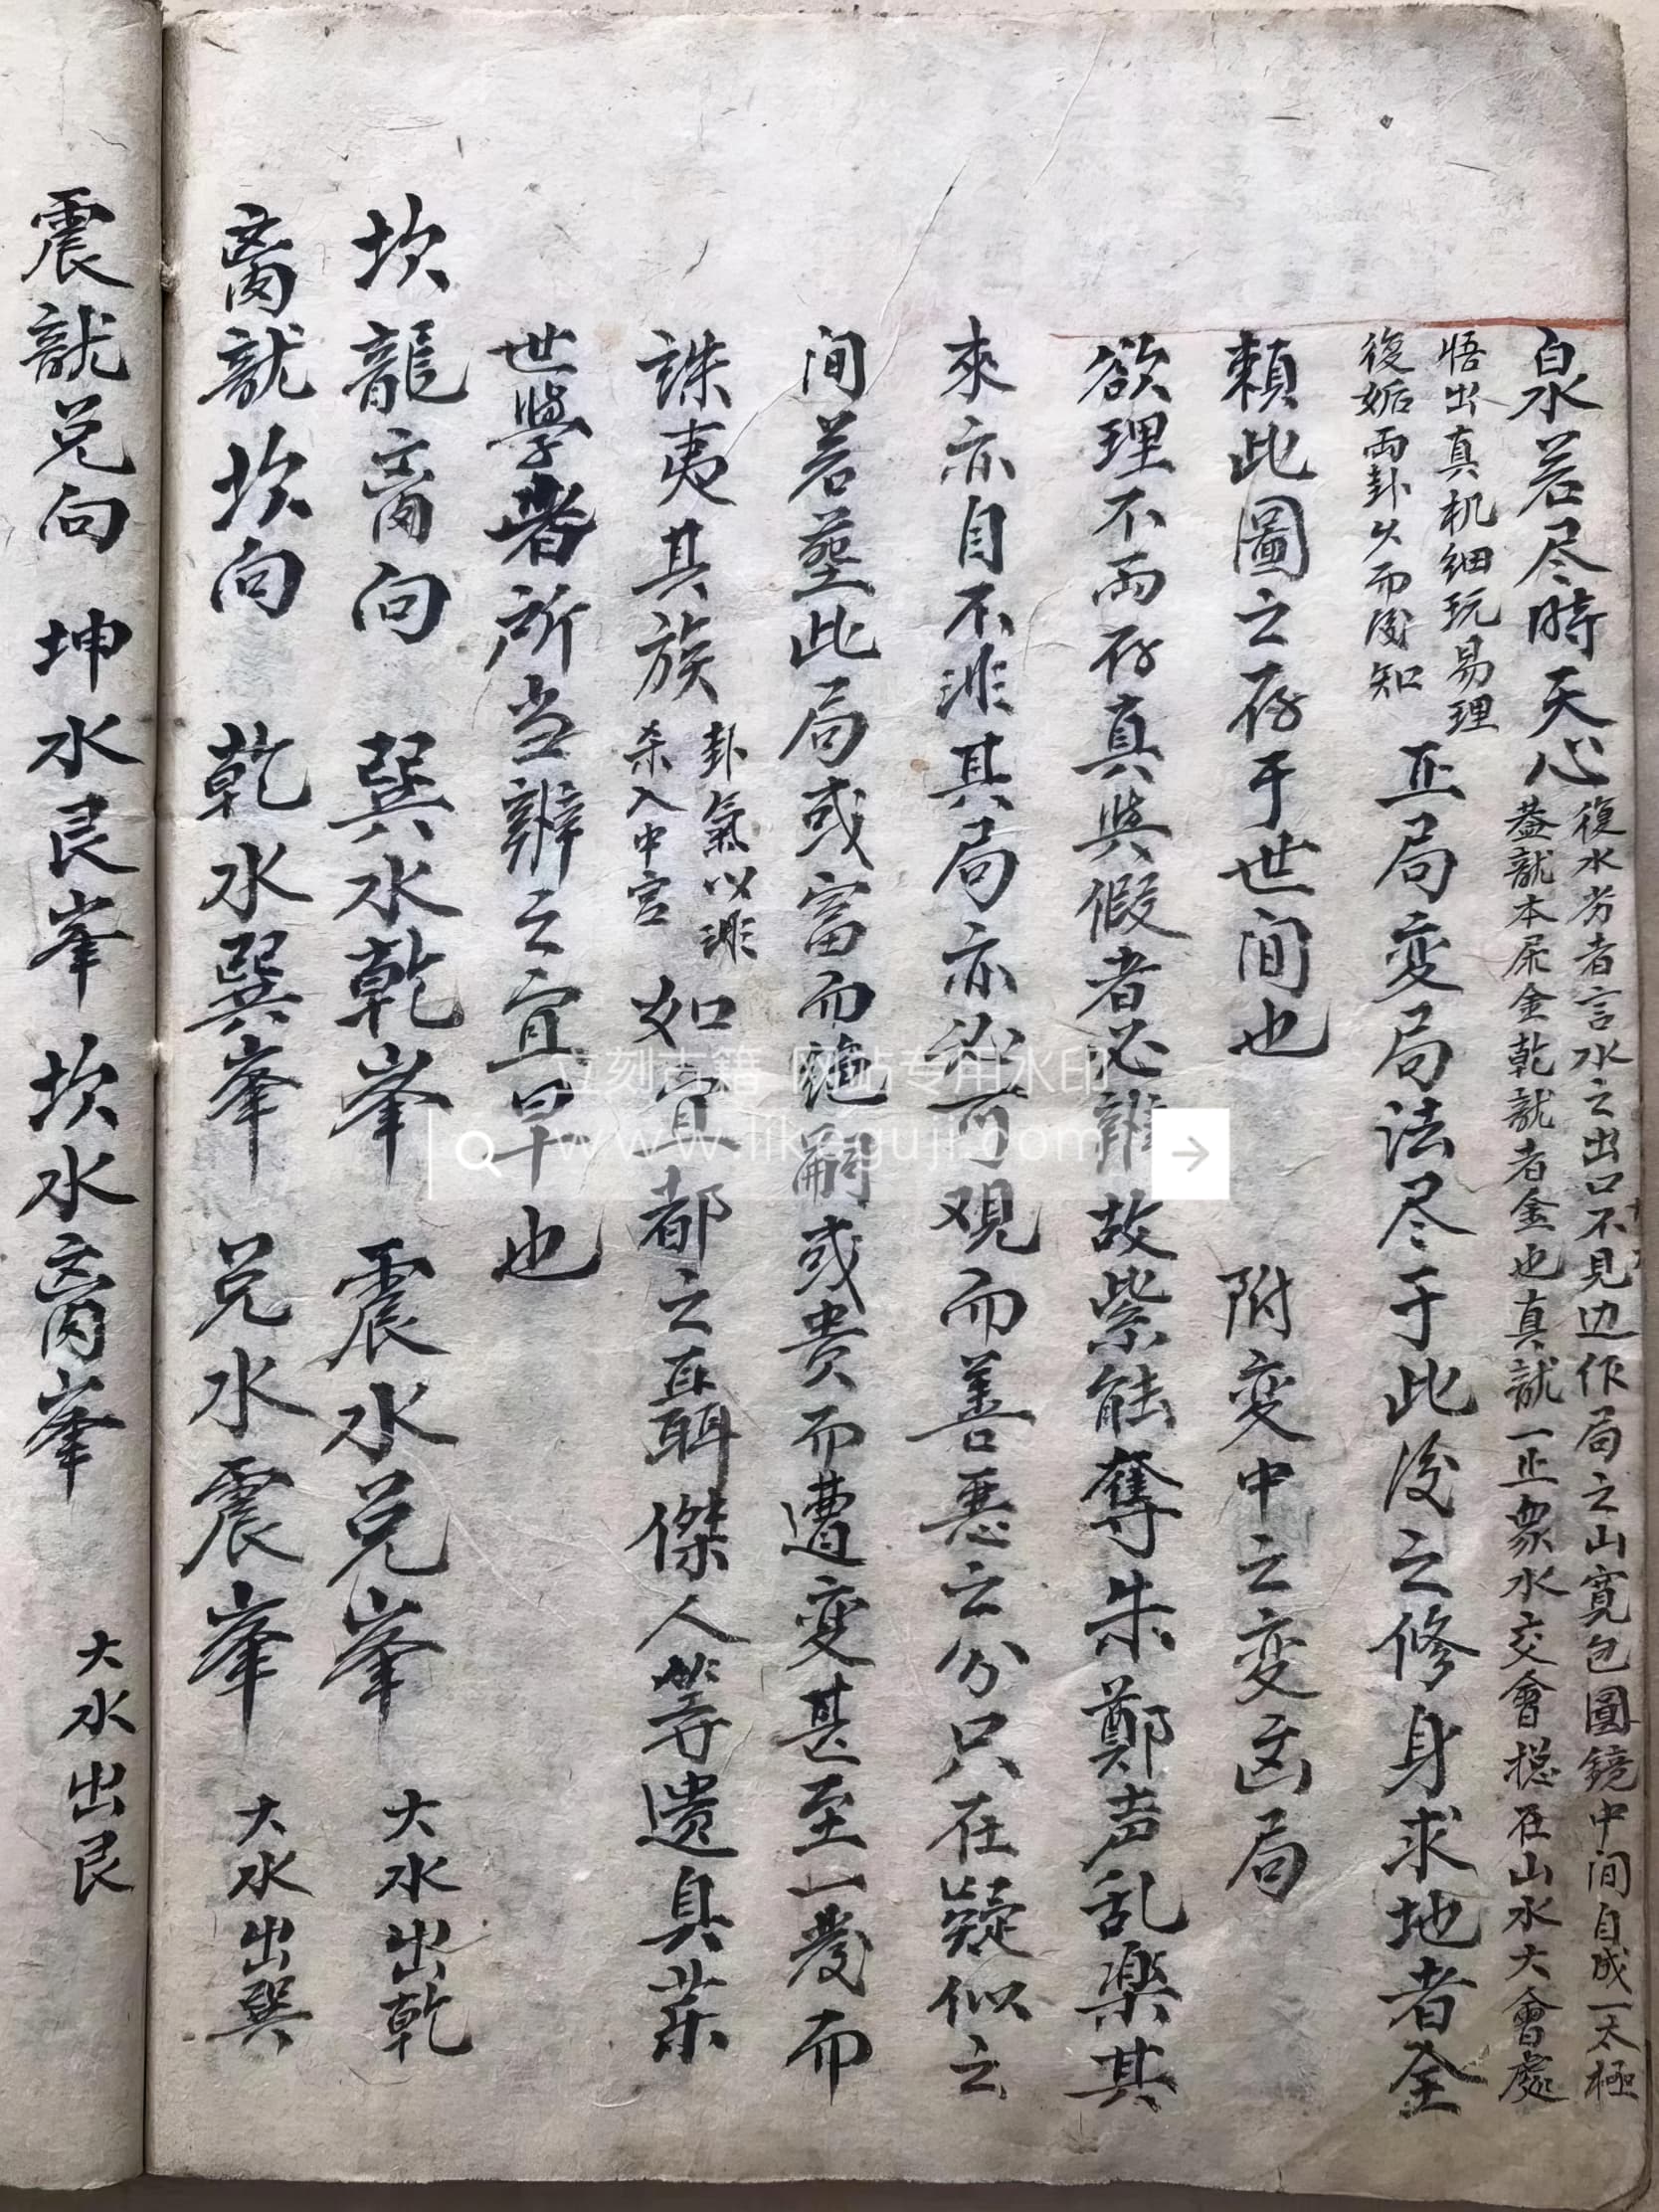 泉若尽時天心
復水劣者言水之出口不見边作局之山寛包圓鏡中间自成一太極
葢龍本属金乾龍者金也真龍一正衆水交會搃在山水大會處
悟出真机细玩易理
復姤両卦久而後知
正局变局法尽于此後之修身求地者全
頼此圖之存于世间也 附变中之变凶局
欲理不両存真與假者必辨故紫能奪朱鄭声乱楽其
來亦自不淮其局亦為可观而善悪之分只在疑似之
间若塟此局或富而絶嗣或贵而遭变甚至一發而
誅夷其族
卦氣以淮
杀入中宫
如宣都之聶傑人等遗具葉
世學者所当辨之宜早也
坎龍离向 巽水乾峯 震水兑峯 大水出乾
离龍坎向 乾水巽峯 兑水震峯 大水出巽
震龍兑向 坤水艮峯 坎水离峯 大水出艮
立刻古籍 网站专用水印
www.likeguji.com